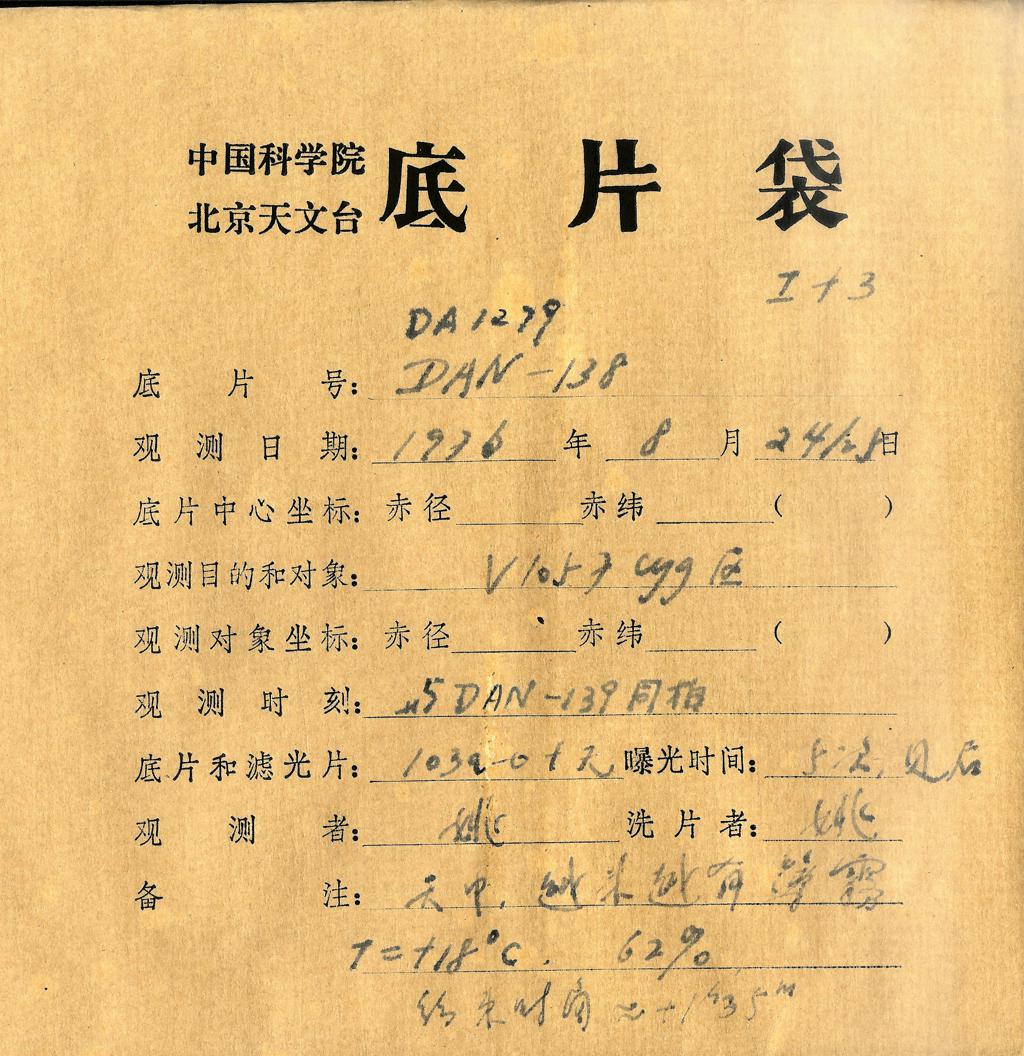 中国科学院
北京天文台
底片袋
I + 3
DA1279
底片号: DAN-138
观测日期: 1976 年 8 月 24/25日
底片中心坐标: 赤径 赤纬 ( )
观测目的和对象: V1057 cyg 区
观测对象坐标: 赤径 赤纬 ( )
观测时刻: 与DAN-139同拍
底片和滤光片: 103a-O + 无 曝光时间: 5次, 见后
观测者: 姚 洗片者: 姚
备注: 天中, 越来越有薄雾
T=+18°C. 62%
结束时角 ≈ +1ʰ35ᵐ